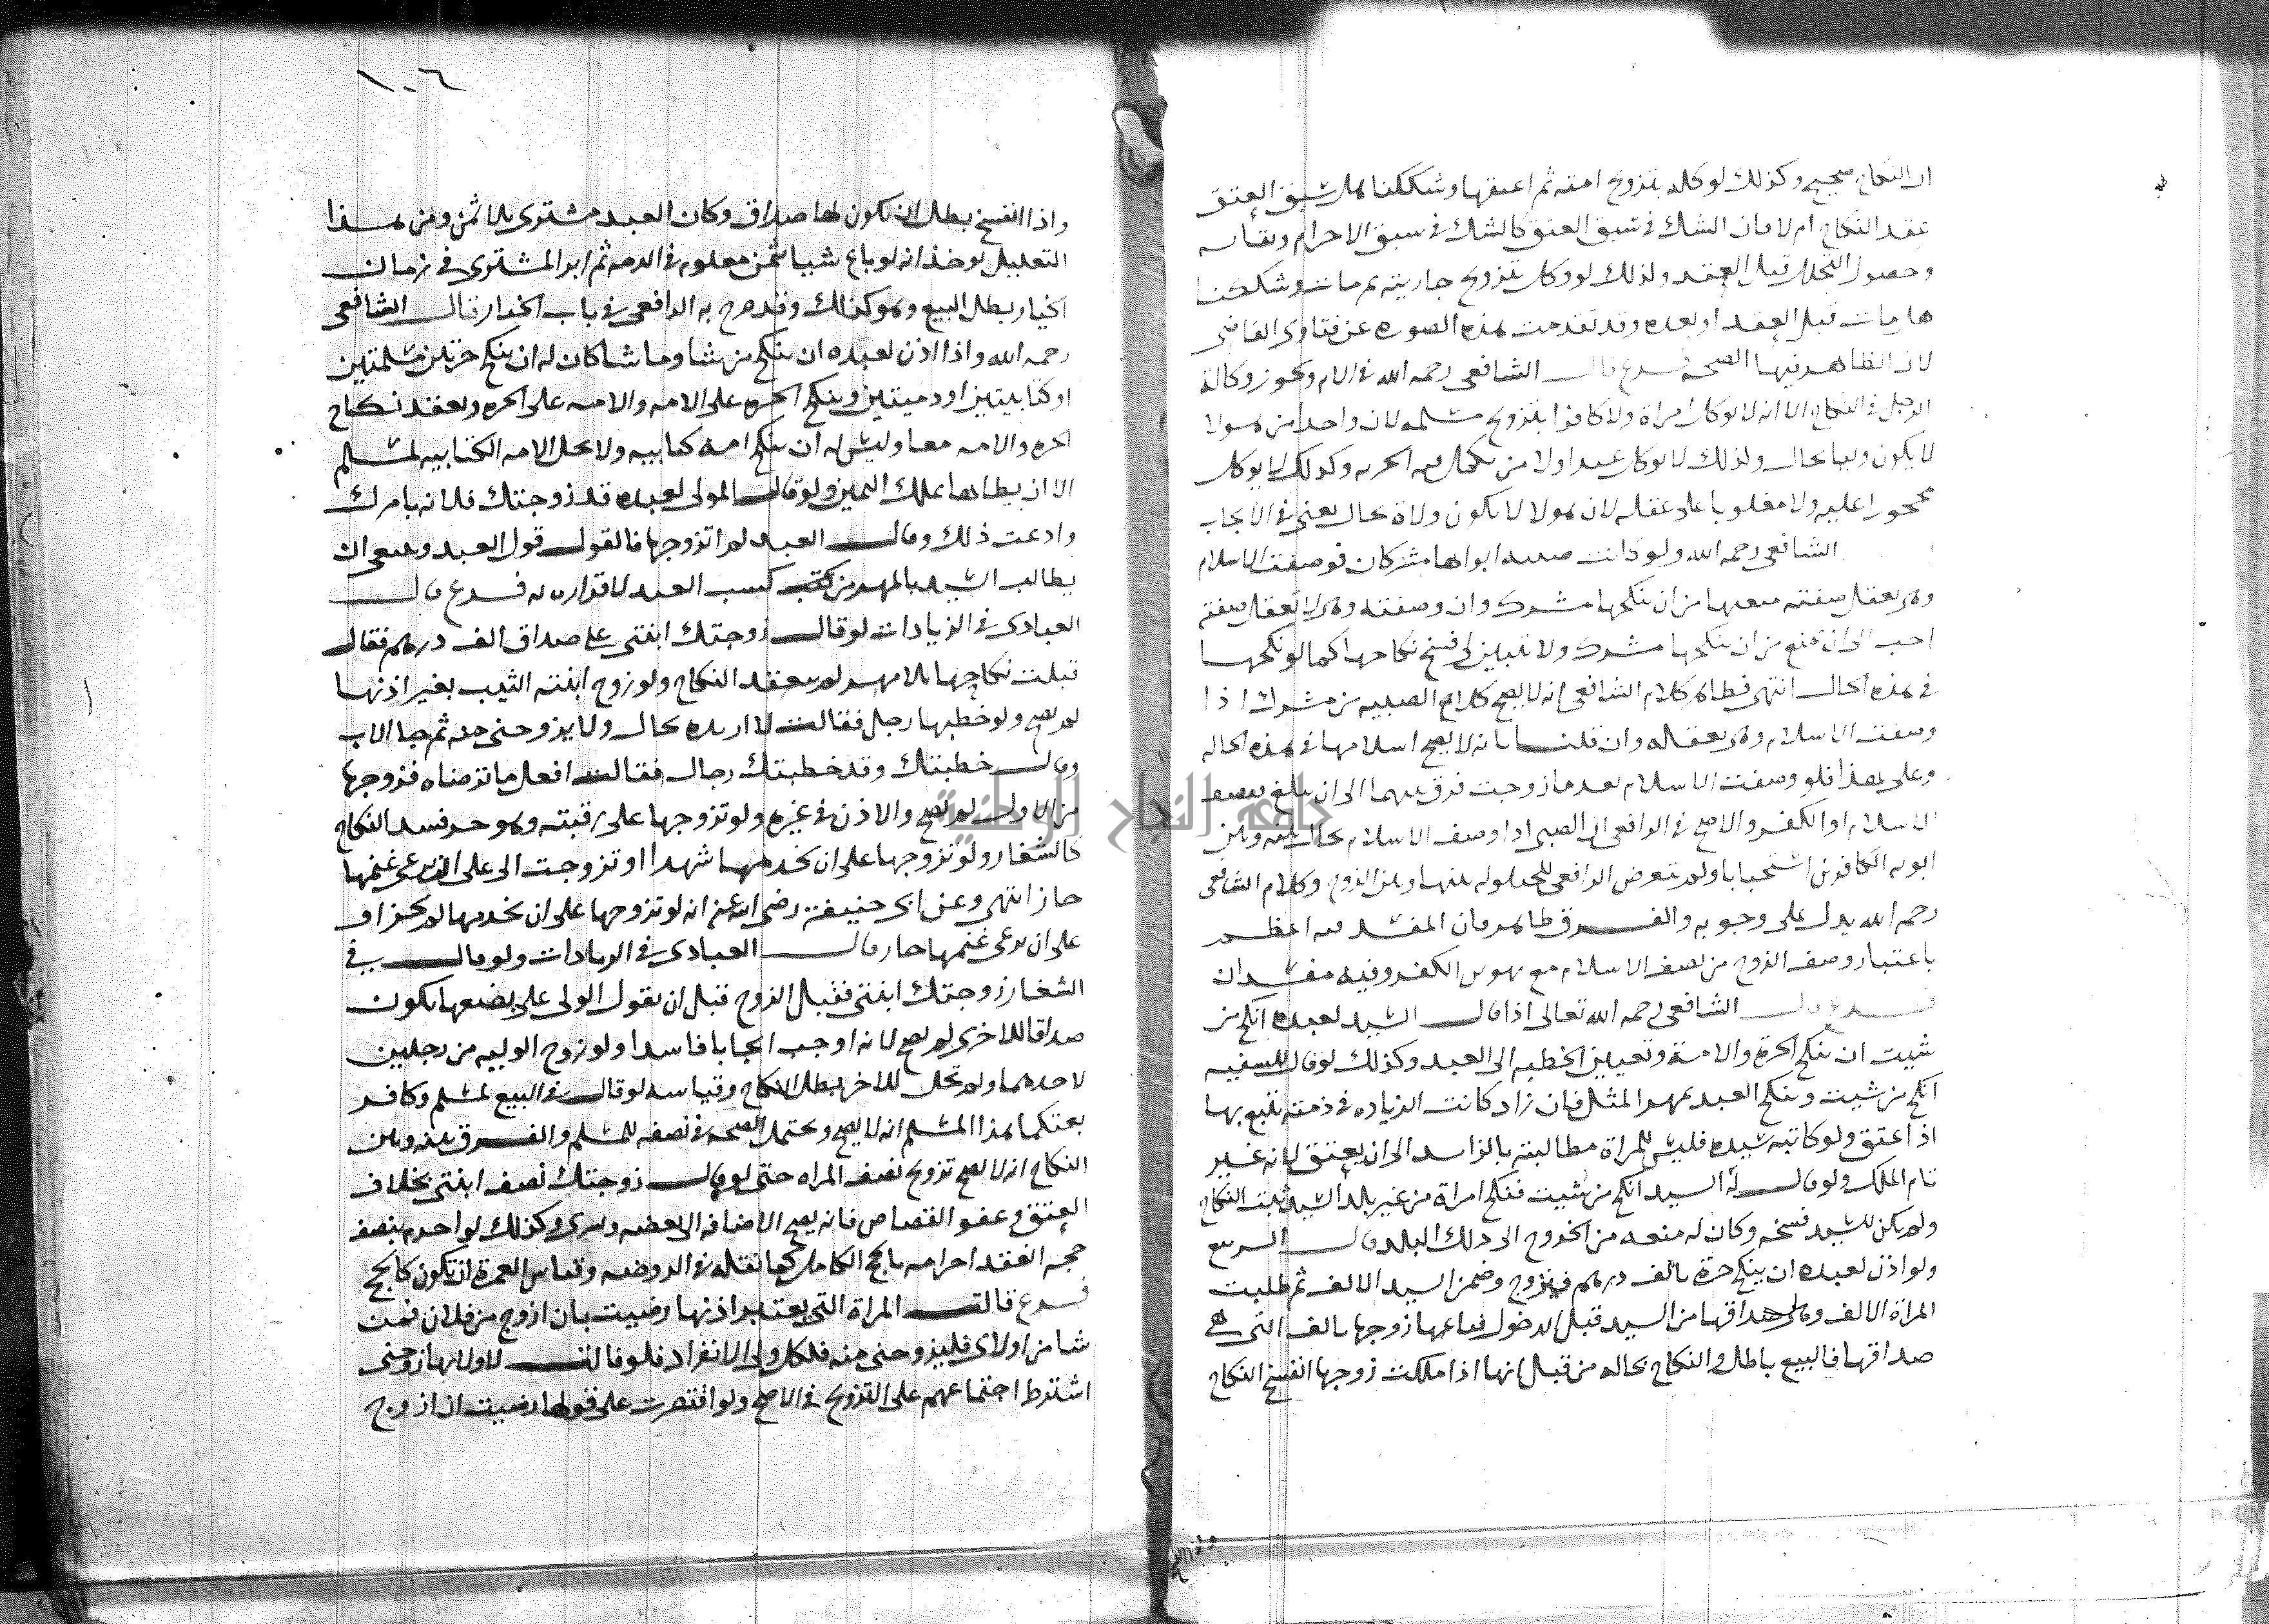 ان النكاح صحيح وكذلك لو وكله بتزويج امته ثم اعتقها وشككنا هل سبق العتق
عقد النكاح ام لا فان الشك في سبق العتق كالشك في سبق الاحرام وبقايه
وحصول التحلل قبل العقد وكذلك لو وكل بتزويج جاريته ثم مات وشككنا
هل مات قبل العقد او بعده وقد تقدمت هذه الصوره عن فتاوى القاضي
لان الظاهر فيها الصحة فرع قال الشافعي رحمه الله في الام ويجوز وكالة
الرجل في النكاح الا انه لا يوكل امراة ولا كافرا بتزويج مسلمه لان واحدا من هولا
لا يكون وليا بحال وكذلك لا يوكل عبدا ولا من لم يكمل فيه الحريه وكذلك لا يوكل
محجورا عليه ولا مغلوبا على عقله لان هولا لا يكون ولاة بحال يعني في الايجاب
الشافعي رحمه الله ولو كانت صبيه ابواها مشركان فوصفت الاسلام
وهي تعقل صفته منعها من ان ينكحها مشرك وان وصفته وهي لا تعقل صفته
احب الى ان تمنع من ان ينكحها مشرك ولا تبين لي فسخ نكاحها كما لو نكحها
في هذه الحال انتهى فظاهر كلام الشافعي انه لا يصح كلام الصبيه من مشرك اذا
وصفت الاسلام وهي تعقله وان قلنا بانه لا يصح اسلامها في هذه الحاله
وعلى هذا فلو وصفت الاسلام بعد ما زوجت فرق بينهما الى ان تبلغ فتصف
الاسلام او الكفر والاصح في الرافعي ان الصبي اذا وصف الاسلام يحال بينه وبين
ابويه الكافرين استحبابا ولم يتعرض الرافعي للحيلوله بينها وبين الزوج وكلام الشافعي
رحمه الله يدل على وجوبه والفرق ظاهر فان المفسده فيه اعظم
باعتبار وصف الزوج من يصف الاسلام مع بهوس الكفر وفيه مفسدان
فرع قال الشافعي رحمه الله تعالى اذا قال السيد لعبده انكح من
شيت ان ينكح الحرة والامة وتعيين الخطبه الى العبد وكذلك لو قال للسفيه
انكح من شيت وينكح العبد بمهر المثل فان زاد كانت الزياده في ذمته تتبع بها
اذا عتق ولو كاتبه سيده فليس للمراة مطالبته بالزايد الى ان يعتق لانه غير
تام الملك ولو قال له السيد انكح من شيت فنكح امراة من غير بلد السيد ثبت النكاح
ولم يكن للسيد فسخه وكان له منعه من الخروج الى ذلك البلد قال الربيع
ولو اذن لعبده ان ينكح حرة بالف درهم فتزوج وضمن السيد الالف ثم طلبت
المراة الالف وهي صداقها من السيد قبل الدخول فباعها زوجها بالف التي هي
صداقها فالبيع باطل والنكاح بحاله من قبل انها اذا ملكت زوجها انفسخ النكاح
واذا انفسخ
١٠٦
واذا انفسخ بطل ان يكون لها صداق وكان العبد مشترى بلا ثمن ومن هذا
التعليل يوخذ انه لو باع شيا بثمن معلوم في الذمه ثم ابرا المشترى في زمان
الخيار بطل البيع وهو كذلك وقد صرح به الرافعي في باب الخيار قال الشافعي
رحمه الله واذا اذن لعبده ان ينكح من شا وما شا كان له ان ينكح حرتين مسلمتين
او كتابيتين او ذميتين وينكح الحره على الامه والامه على الحره ويعقد نكاح
الحره والامه معا وليس له ان ينكح امه كتابيه ولا تحل الامه الكتابيه لمسلم
الا ان يطاها بملك اليمين ولو قال المولى لعبده قد زوجتك فلانه بامرك
وادعت ذلك وقال العبد لم اتزوجها فالقول قول العبد وينبغي ان
يطالب السيد بالمهر من كسب العبد لاقراره به فرع قال
العبادى في الزيادات لو قال زوجتك ابنتي على صداق الف درهم فقال
قبلت نكاحها بلا مهر لم ينعقد النكاح ولو زوج ابنته الثيب بغير اذنها
لم يصح ولو خطبها رجل فقالت لا اريده بحال ولا يزوجني منه ثم جا الاب
وقال خطبتك وقد خطبتك رجال فقالت افعل ما ترضاه فزوجها
من الاول لم يصح والاذن في غيره ولو تزوجها على رقبته وهو حر فسد النكاح
كالشغار ولو تزوجها على ان يخدمها شهرا او تزوجت الى على ان يرعى غنمها
جاز انتهى وعن ابى حنيفة رضي الله عنه انه لو تزوجها على ان يخدمها لم يجز او
على ان يرعى غنمها جاز قال العبادى في الزيادات ولو قال في
الشغار زوجتك ابنتي فقبل الزوج قبل ان يقول الولى على بضعها يكون
صداقا للاخرى لم يصح لانه اوجب ايجابا فاسدا ولو زوج الوليه من رجلين
لاحدهما ولم تحل للاخر بطل النكاح وقياسه لو قال في البيع لمسلم وكافر
بعتكما هذا المسلم انه لا يصح ويحتمل الصحه في نصفه للمسلم والفرق بينه وبين
النكاح انه لا يصح تزويج نصف المراه حتى لو قال زوجتك نصف ابنتي بخلاف
العتق وعفو القصاص فانه يصح الاضافه الى بعضه ويسرى وكذلك لو احرم بنصف
حجه انعقد احرامه بالحج الكامل كما نقله في الروضه وقياس العمرة ان تكون كالحج
فرع قالت المراة التي يعتبر اذنها رضيت بان ازوج من فلان فمن
شا من اولياى فليزوجني منه فلكل ولى الانفراد فلو قالت لاوليايها زوجني
اشترط اجتماعهم على التزويج في الاصح ولو اقتصرت على قولها رضيت ان ازوج